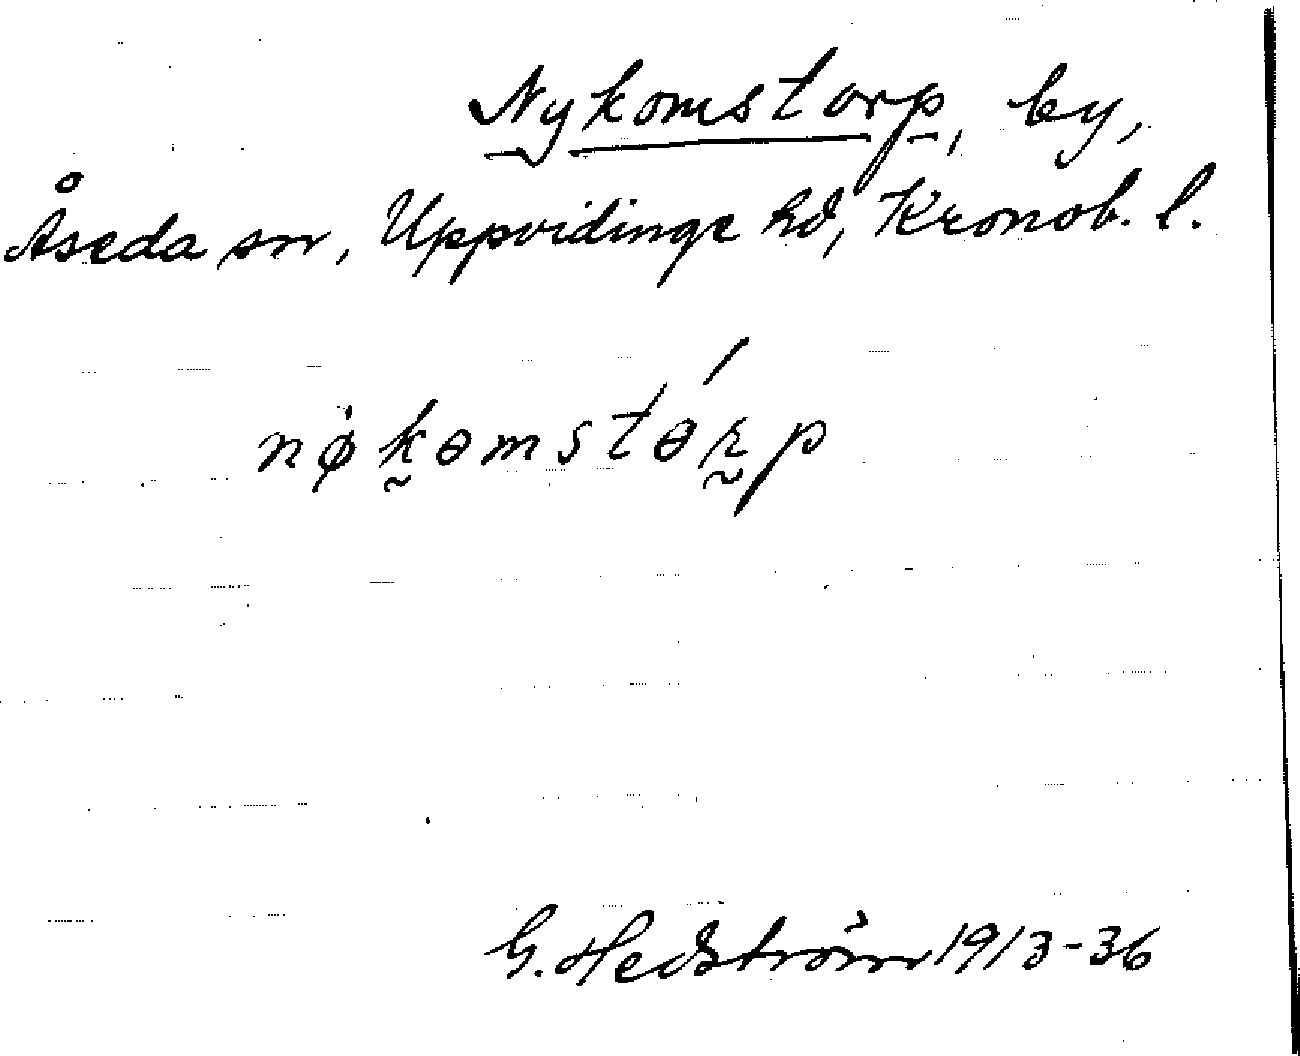 Nykomstorp, by,
Åseda sn, Uppvidinge hd, Kronob. l.
nøkəmstərp
G. Hedström 1913-36